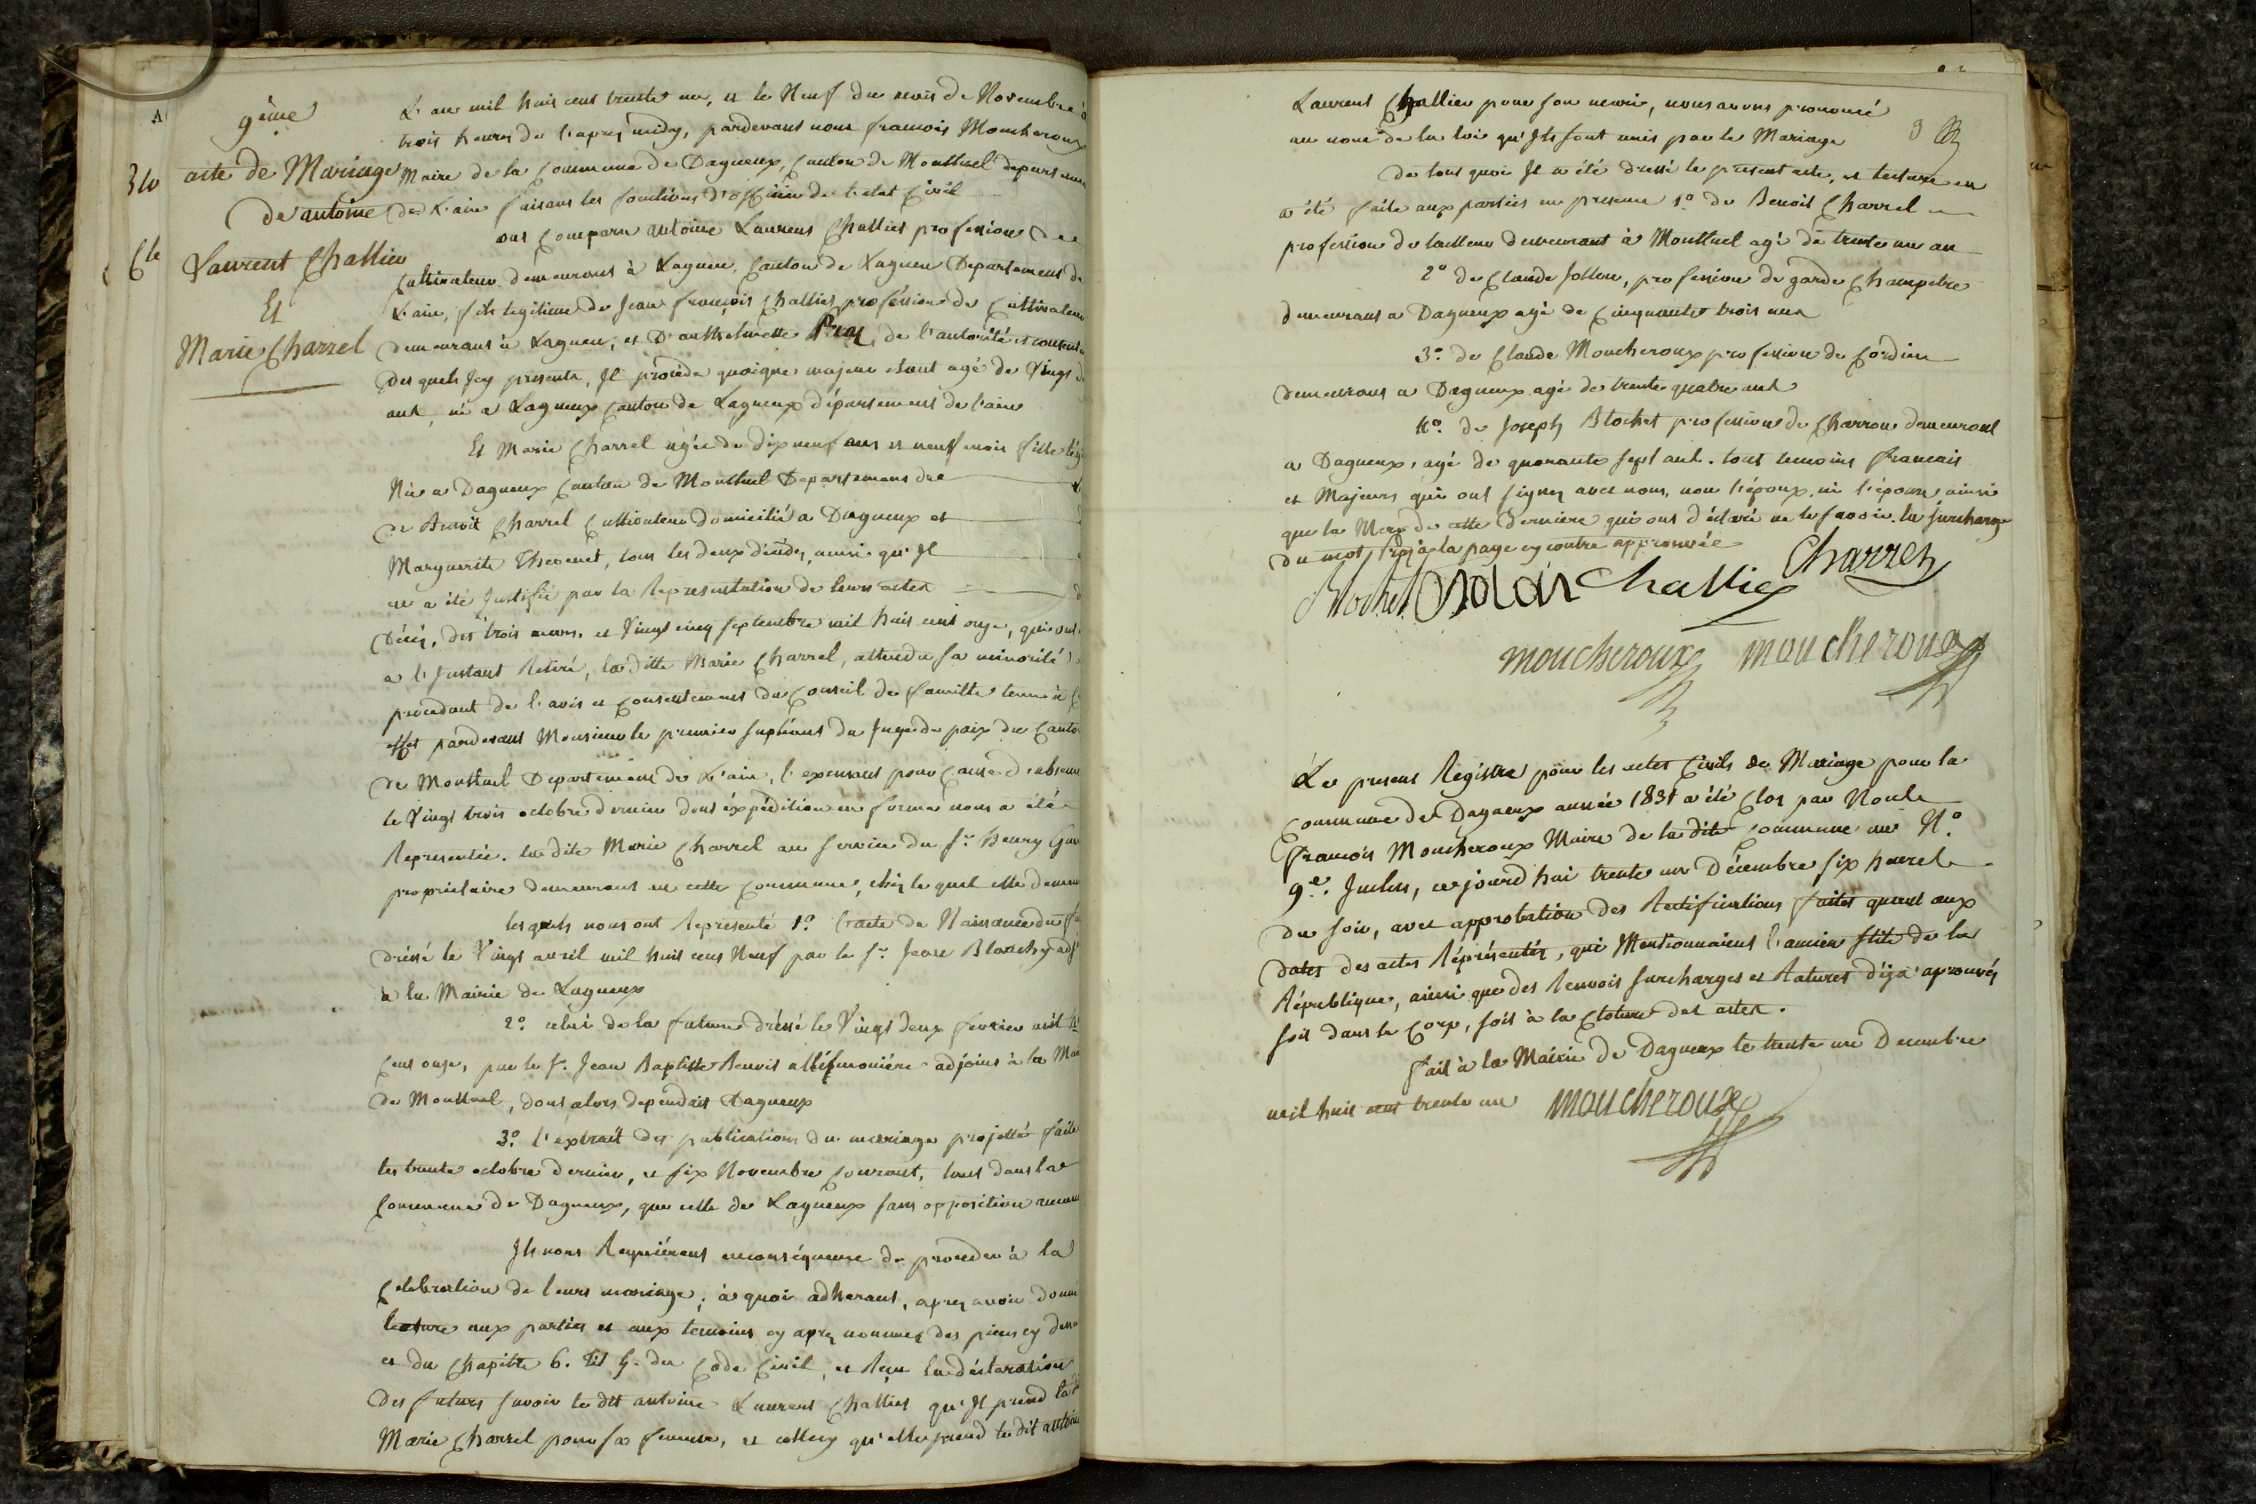 9ème
acte de Mariage
De antoine
Laurent Challier
Et
Marie Charrel
L'an mil huit cent trente un, et le Neuf du mois de Novembre à
trois heures de l'apres midy, pardevant nous francois Moucheroux
Maire de la Commune de Dagneux, Canton de Montluel departeme
de L'ain faisant les fonctions d'officier de l'etat Civil
ont Comparu antoine Laurent Challier profession de
Cultivateur demeurant à Lagneu, Canton de Lagneu Departement de
L'ain, fils legitime de Jean françois Challier, profession de Cultivateur
demeurant à Lagneu, et D'anthelmette de l'autorité et consente
des quels Icy presents, Il procède quoique majeur étant agé de Vingt d
ans, né a Lagneux Canton de Lagneux département de l'ain
Et Marie Charrel agée de dix neuf ans et neuf mois fille lég
Née a Dagneux Canton de Montluel Departement de
de Benoit Charrel Cultivateur domicilié a Dagneux et
Marguerite Thevenet, tous les deux décédés, ainsi qu'Il
en a été Justifié par la Representation de leurs actes
Décès, des trois mars, et Vingt cinq septembre mil huit cent onze, qui ont
a l'Instant Retiré, la ditte Marie Charrel, attendu sa minorité
procedant de l'avis et consentement du Conseil de famille tenu à
effet pardevant Monsieur le premier supléant du Juge de paix du Canto
de Montluel Departement de L'ain, l'exerçant pour Cause d'absence
le Vingt trois octobre dernier dont éxpédition en forme nous a été
Representée. la dite Marie Charrel au service du Sr. henry
propriétaire demeurant en cette Commune, chez le quel elle demeure
les quels nous ont Representé 1º. l'acte de Naissance du fu
dréssé le Vingt avril mil huit cent Neuf par le Sr. Jean Blanchy adj
à la Mairie de Lagneux
2º. celui de la future dréssé le Vingt deux fevrier mil h
Cent onze, par le Sr. Jean Baptiste Benoit adjoint à la Mai
de Montluel, dont alors dependait Dagneux
3º. l'éxtrait des publications du mariage projetté faite
les trente octobre dernier, et six Novembre Courrant, tant dans la
Commune de Dagneux, que celle de Lagneux sans opposition aucune
Ils nous Requiérent enconséquence de proceder à la
Célébration de leurs mariage; à quoi adherant, apres avoir donné
lecture aux parties et aux temoins cy après nommés des pieces cy dess
et du Chapitre 6. tit 5. du Code Civil, et Reçu la déclaration
Des futurs savoir le dit antoine Laurent Challier qu'Il prend la d
Marie Charrel pour sa femme, et celle cy qu'elle prend le dit antoine
Laurent Challier pour son marie, nous avons prononcé
au nom de la loi qu'Ils sont unis par le Mariage
De tout quoi Il a été dressé le present acte, et lecture en
a été faite aux parties en presence 1º. de Benoit Charrel
profession de tailleur demeurant à Montluel agé de trente un an
2º de Claude Jollan, profession de garde Champetre
demeurant a Dagneux agé de Cinquante trois ans
3º. de Claude Moucheroux profession de Cordier
demeurant a Dagneux agé de trente quatre ans
4º. de Joseph Blochet profession de Charron demeurant
a Dagneux, agé de quarante sept ans. tous temoins francais
et Majeurs qui ont signez avec nous, non l'époux ni l'épouse ainsi
que la Mere de cette derniere qui ont déclaré ne le savoir. la surcharge
du mot à la page cy contre approuvée
Blochet Challier Charrel
moucheroux moucheroux
Le present Registre pour les actes Civils de Mariage pour la
Commune de Dagneux année 1831 a été Clos par Nous
François Moucheroux Maire de la dite Commune au Nº.
9e. Inclus, ce jourd'hui trente un Décembre six heures
du soir, avec approbation des Rectifications faites quant aux
dates des actes Réprésentés, qui Mentionnaient l'ancien stile de la
République, ainsi que des Renvois surcharges et Ratures déja aprouvés
soit dans le Corp, soit à la Cloture des actes.
fait à la Mairie de Dagneux le trente un Decembre
mil huit cent trente un moucheroux